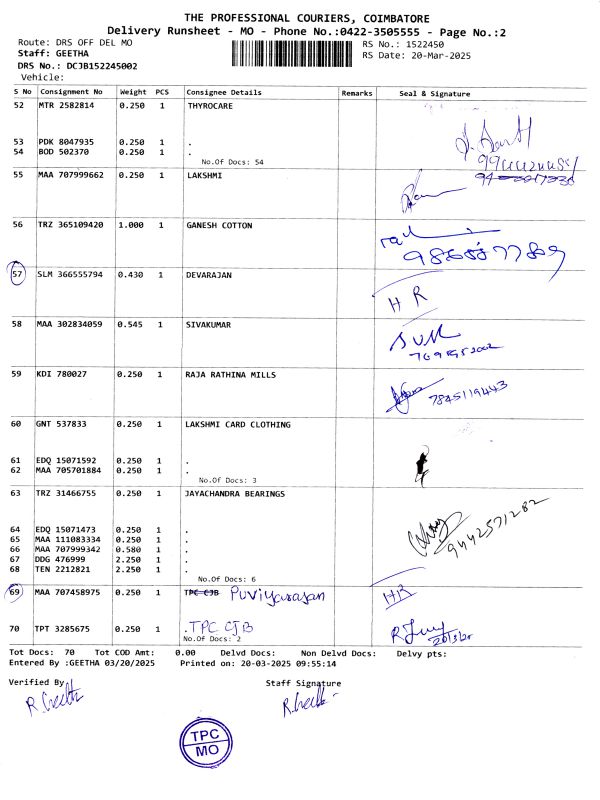 THE PROFESSIONAL COURIERS, COIMBATORE
Delivery Runsheet - MO - Phone No.:0422-3505555 - Page No.:2
Route: DRS OFF DEL MO RS No.: 1522450
Staff: GEETHA RS Date: 20-Mar-2025
DRS No.: DCJB152245002
Vehicle:
S No Consignment No Weight PCS Consignee Details Remarks Seal & Signature
52 MTR 2582814 0.250 1 THYROCARE
53 PDK 8047935 0.250 1 .
54 BOD 502370 0.250 1 .
No.Of Docs: 54
55 MAA 707999662 0.250 1 LAKSHMI
56 TRZ 365109420 1.000 1 GANESH COTTON
57 SLM 366555794 0.430 1 DEVARAJAN
HR
58 MAA 302834059 0.545 1 SIVAKUMAR
59 KDI 780027 0.250 1 RAJA RATHINA MILLS
7845119443
60 GNT 537833 0.250 1 LAKSHMI CARD CLOTHING
61 EDQ 15071592 0.250 1 .
62 MAA 705701884 0.250 1 .
No.Of Docs: 3
63 TRZ 31466755 0.250 1 JAYACHANDRA BEARINGS
64 EDQ 15071473 0.250 1
65 MAA 111083334 0.250 1
66 MAA 707999342 0.580 1
67 DDG 476999 2.250 1
68 TEN 2212821 2.250 1 .
9442571282
No.Of Docs: 6
69 MAA 707458975 0.250 1 TPC CJB Puviyarasan HR
70 TPT 3285675 0.250 1 . TPC CJB
No.Of Docs: 2 20/3/25
Tot Docs: 70 Tot COD Amt: 0.00 Delvd Docs: Non Delvd Docs: Delvy pts:
Entered By :GEETHA 03/20/2025 Printed on: 20-03-2025 09:55:14
Verified By Staff Signature
R. Geetha
TPC
MO